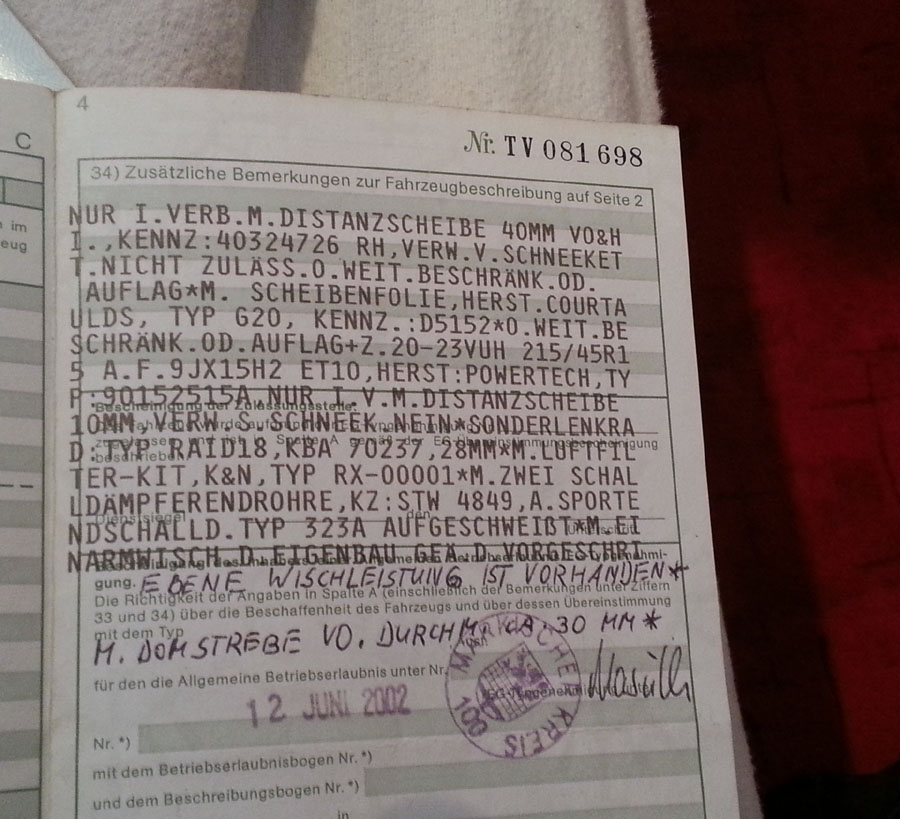 C
im
eug
4
Nr. TV 081 698
34) Zusätzliche Bemerkungen zur Fahrzeugbeschreibung auf Seite 2
NUR I.VERB.M.DISTANZSCHEIBE 40MM VO&H
I.,KENNZ:40324726 RH,VERW.V.SCHNEEKET
T.NICHT ZULÄSS.O.WEIT.BESCHRÄNK.OD.
AUFLAG*M. SCHEIBENFOLIE,HERST.COURTA
ULDS, TYP G20, KENNZ.:D5152*O.WEIT.BE
SCHRÄNK.OD.AUFLAG+Z.20-23VUH 215/45R1
5 A.F.9JX15H2 ET10,HERST:POWERTECH,TY
P:90152515A,NUR I.V.M.DISTANZSCHEIBE
Bescheinigung der Zulassungsstelle:
10MM,VERW.S.SCHNEEK.NEIN*SONDERLENKRA
Spalte A gemäß der EG-Übereinstimmungsbescheinigung
D:TYP RAID18,KBA 70237,28MM*M.LUFTFIL
beschrieben
TER-KIT,K&N,TYP RX-00001*M.ZWEI SCHAL
LDÄMPFERENDROHRE,KZ:STW 4849,A.SPORTE
Dienstsiegel
den
NDSCHALLD.TYP 323A AUFGESCHWEIßT*M.EI
NARMWISCH.D.EIGENBAU GEÄ.D.VORGESCHRI
gung. EBENE WISCHLEISTUNG IST VORHANDEN*
Die Richtigkeit der Angaben in Spalte A (einschließlich der Bemerkungen unter Ziffern
33 und 34) über die Beschaffenheit des Fahrzeugs und über dessen Übereinstimmung
mit dem Typ
M. DOMSTREBE VO. DURCHM. CA. 30 MM*
für den die Allgemeine Betriebserlaubnis unter Nr.
MÄRKISCHER KREIS
100
12 JUNI 2002
Nr. *)
mit dem Betriebserlaubnisbogen Nr. *)
und dem Beschreibungsbogen Nr. *)
in